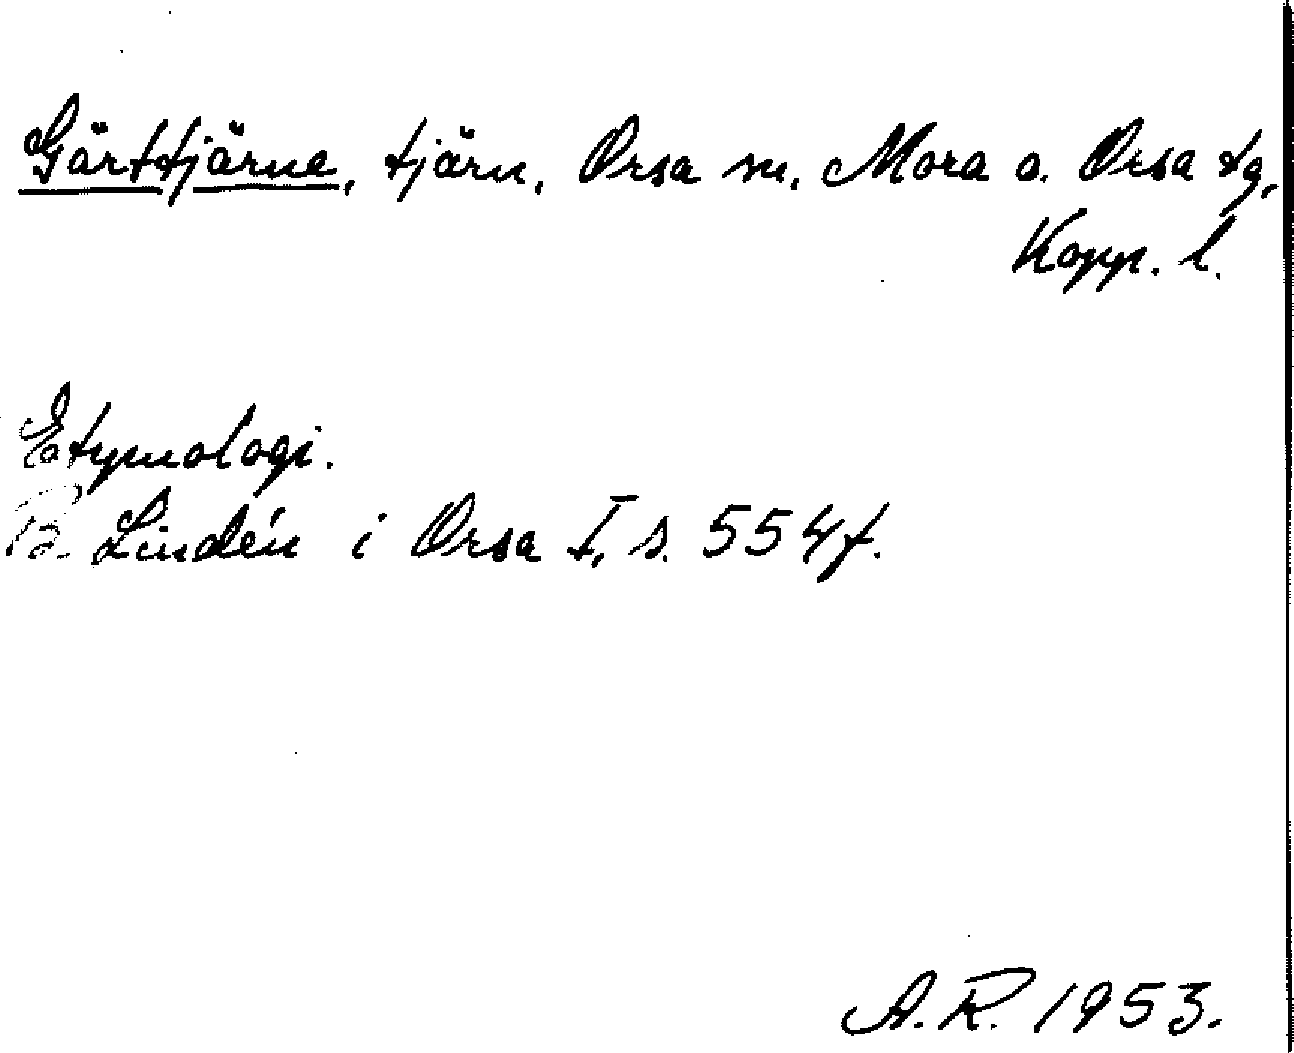 Gärttjärne, tjärn, Orsa sn. Mora o. Orsa tg,
Kopp. l.
Etymologi.
B. Lindén i Orsa I, s. 554 f.
A.R. 1953.